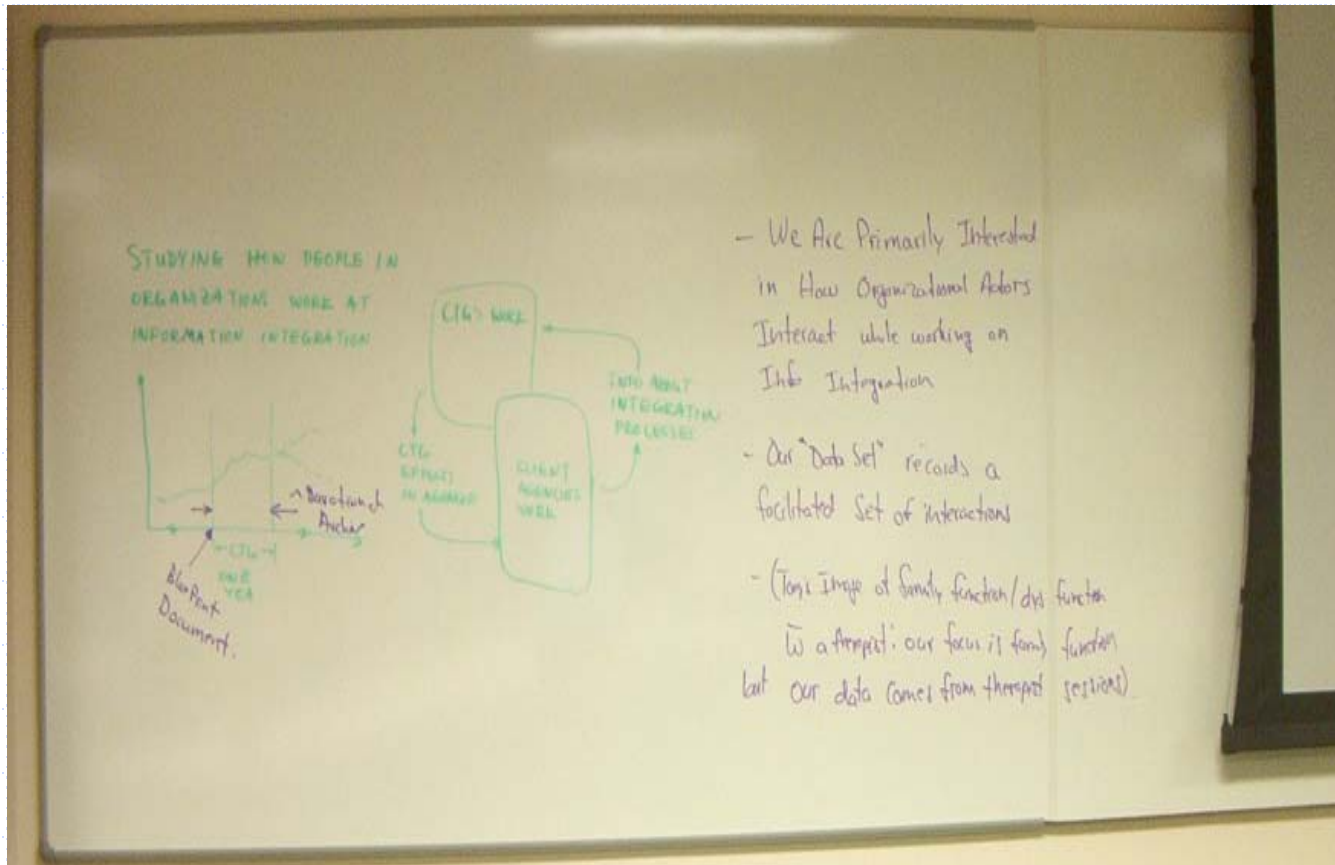 STUDYING HOW PEOPLE IN
ORGANIZATIONS WORK AT
INFORMATION INTEGRATION
CTG
ONE
YEA
Document.
CTG'S WORK
CTG
EFFECTS
IN
CLIENT
AGENCIES
WORK
INFO ABOUT
INTEGRATION
PROCESSES
- We Are Primarily Interested
in How Organizational Actors
Interact while working on
Info Integration
- Our "Data Set" records a
facilitated Set of interactions
- (Image of family function/dys function
a therapist: our focus is family function
but our data comes from therapist sessions)